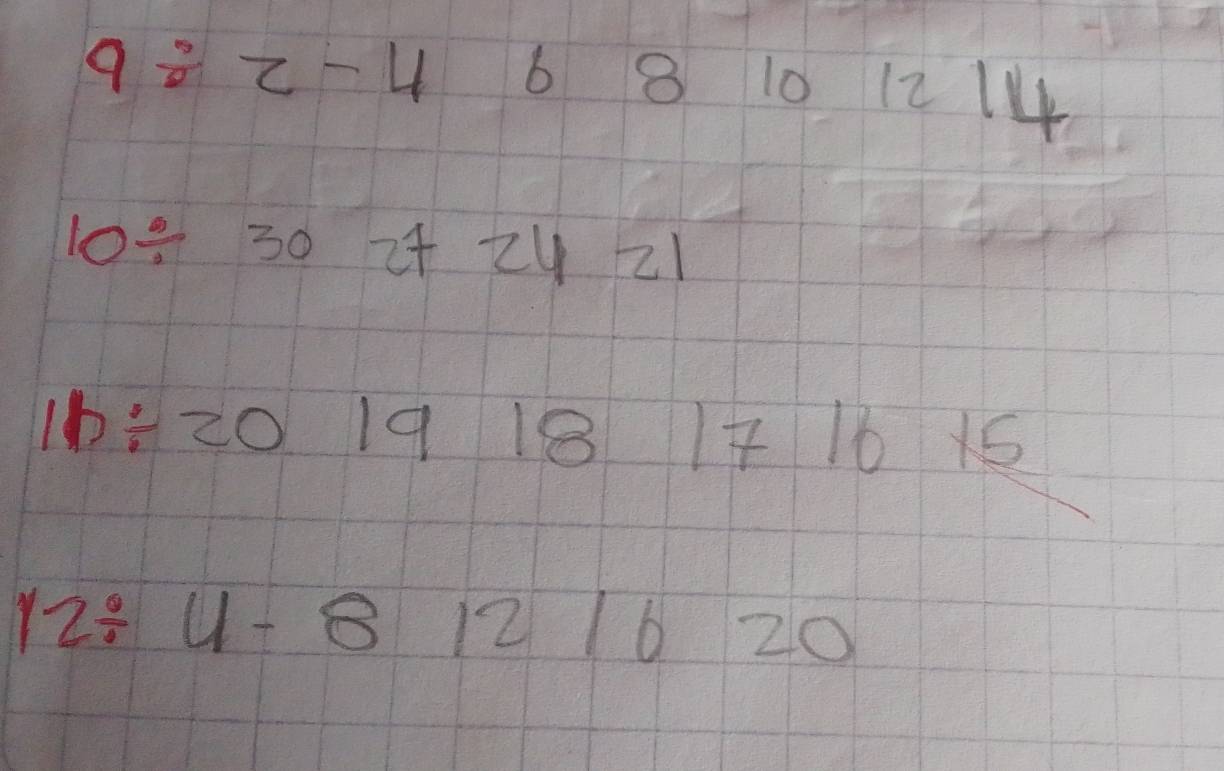 9 ÷ 2 - 4 6 8 10 12 14
10 ÷ 30 27 24 21
11 ÷ 20 19 18 17 16 15
12 ÷ 4 - 8 12 16 20